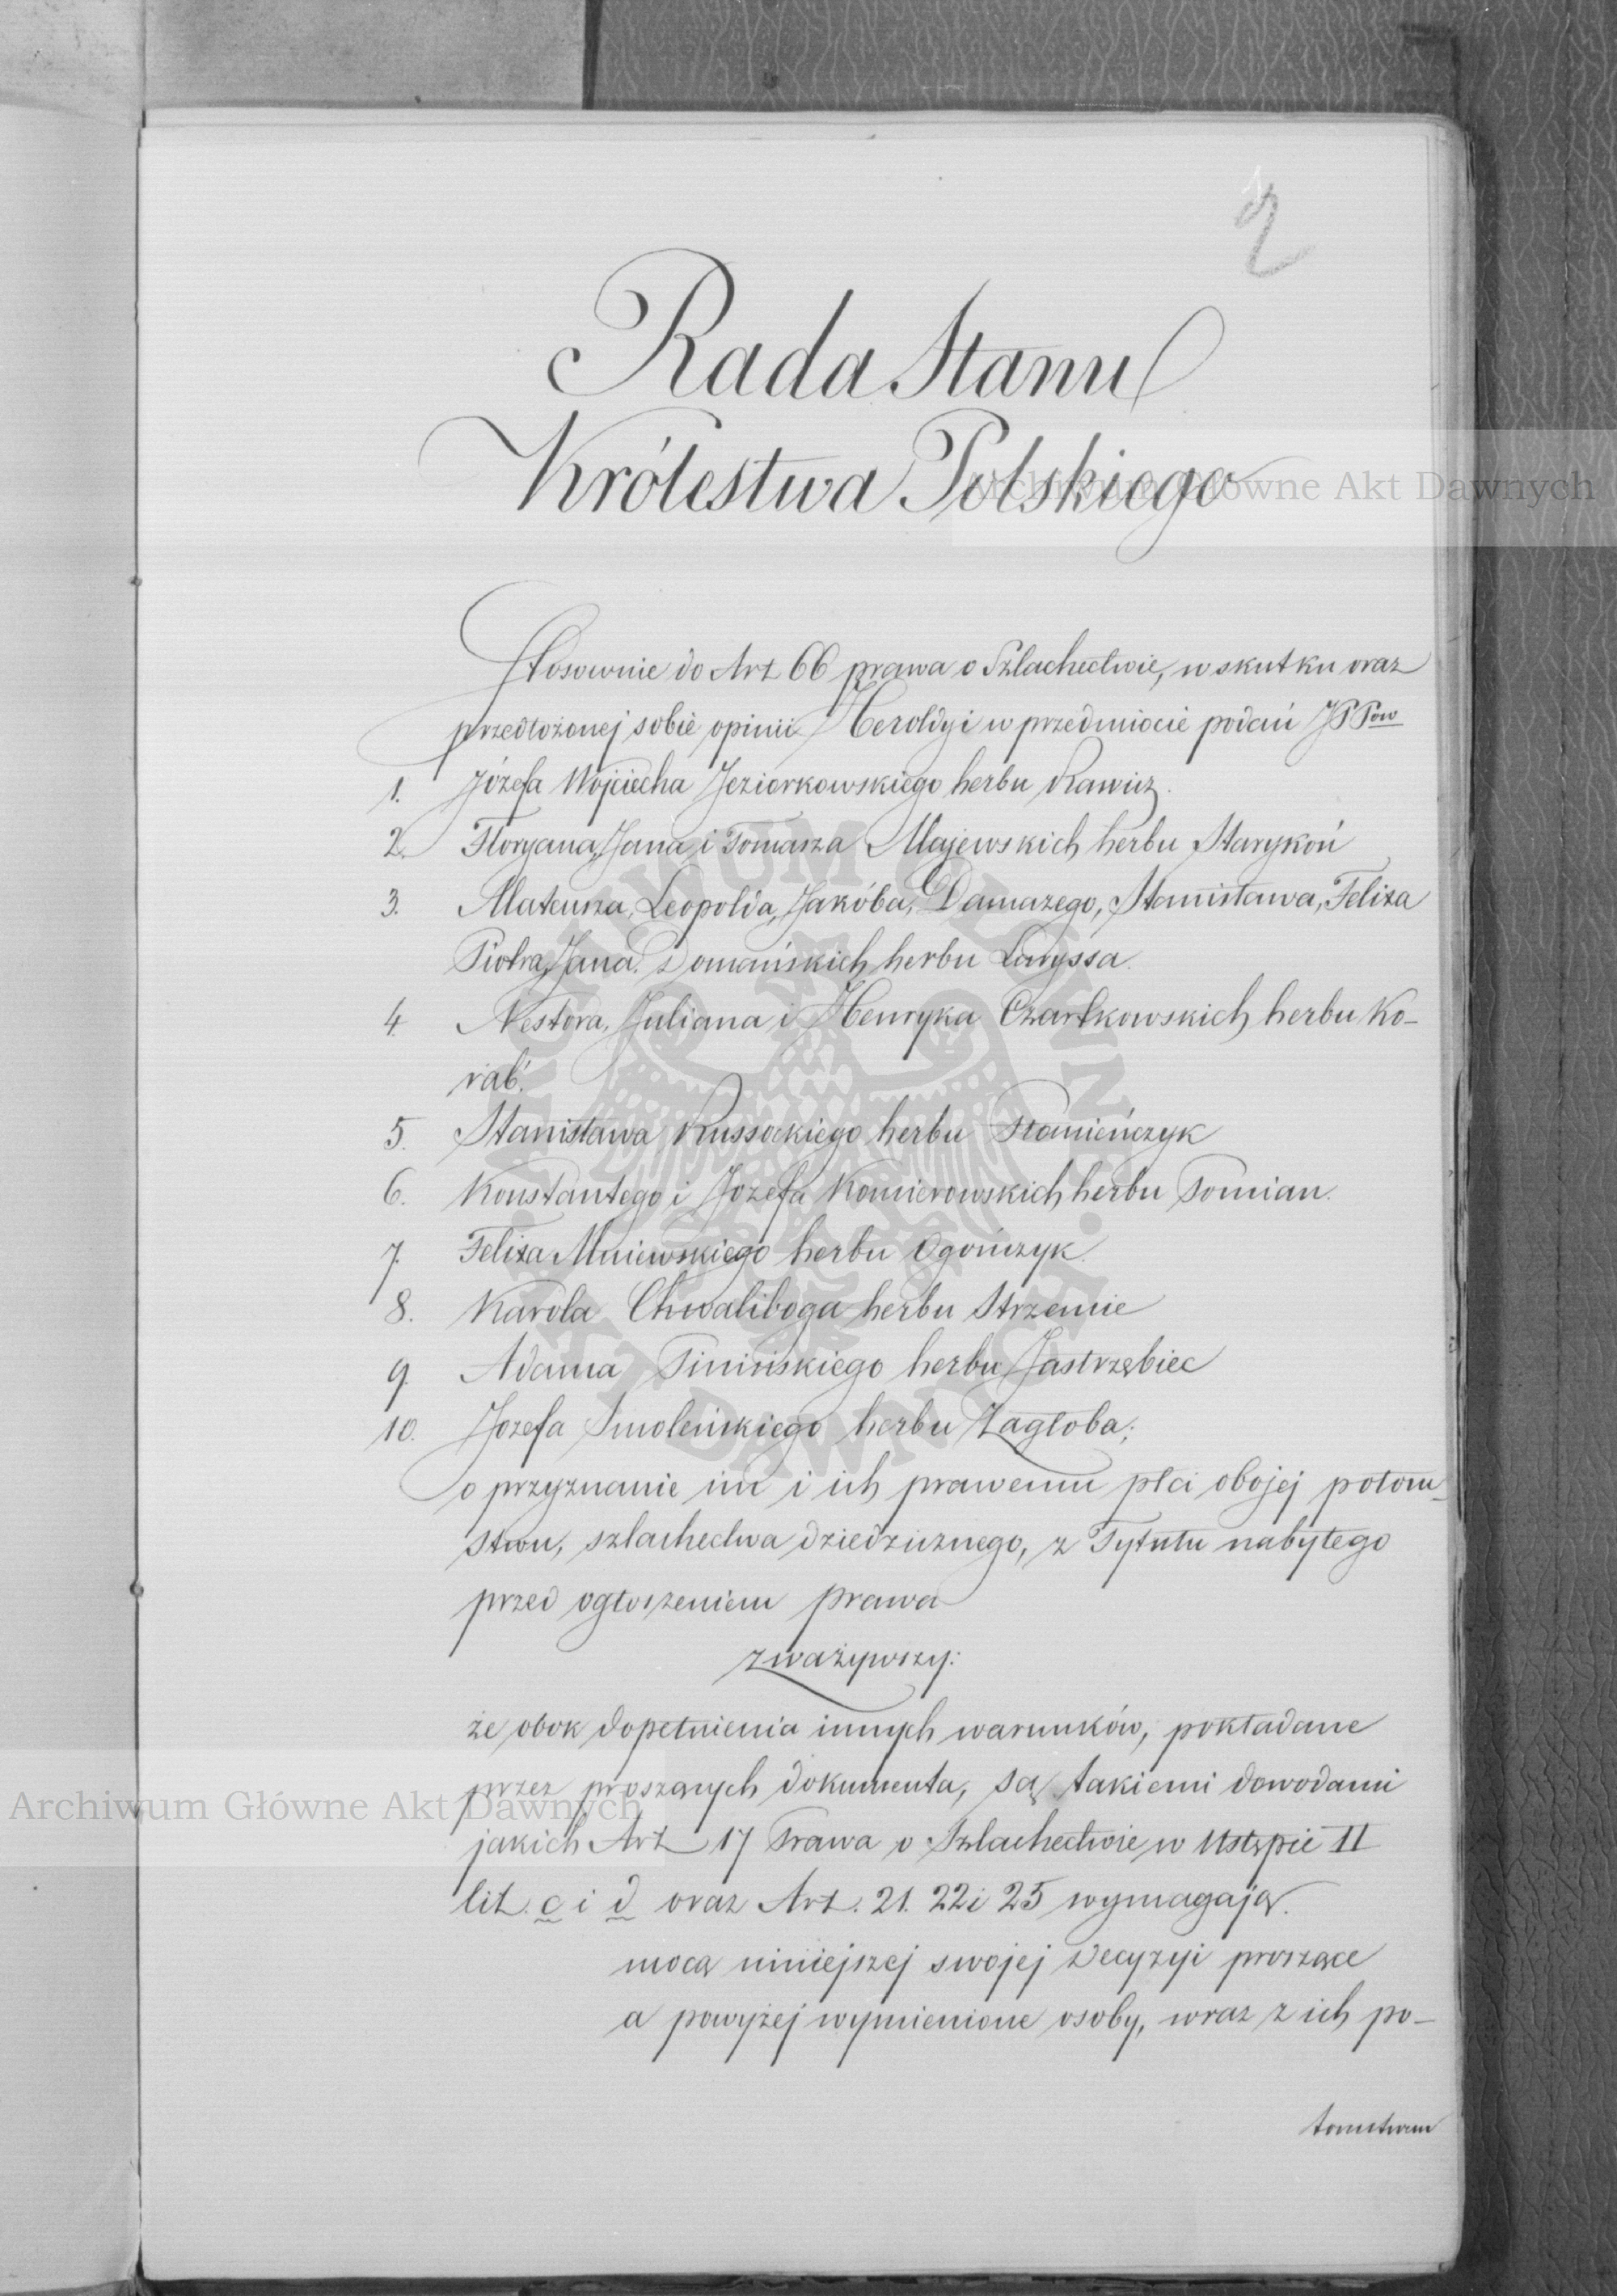 2
Rada Stanu
Królestwa Polskiego
Stosownie do Art 66 prawa o Szlachectwie, w skutku oraz
przedłożonej sobie opinii Heroldyi w przedmiocie podań JPPow
1. Józefa Wojciecha Jeziorkowskiego herbu Rawicz.
2. Floryana, Jana i Tomasza Majewskich herbu Starykoń
3. Mateusza, Leopolda, Jakóba, Damazego, Stanisława, Felixa
Piotra, Jana. Domańskich herbu Laryssa.
4. Nestora, Juliana i Henryka Czarłkowskich herbu Ko-
rab'.
5. Stanisława Russockiego herbu Promieńczyk
6. Konstantego i Jozefa Komierowskich herbu Pomian.
7. Felixa Mniewskiego herbu Ogończyk.
8. Karola Chwaliboga herbu Strzemie
9. Adama Pinińskiego herbu Jastrzębiec
10. Jozefa Smoleńskiego herbu Zagłoba;
o przyznanie im i ich prawemu płci obojej potom-
stwu, szlachectwa dziedzicznego, z Tytułu nabytego
przed ogłoszeniem prawa
zważywszy:
że obok dopełnienia innych warunków, pokładane
przez proszących dokumenta, są takiemi dowodami
jakich Art 17 Prawa o Szlachectwie w Ustępie II
lit. c i d oraz Art. 21. 22 i 25 wymagają.
mocą niniejszej swojej Decyzyi proszące
a powyżej wymienione osoby, wraz z ich po-
tomstwem
Archiwum Główne Akt Dawnych
Archiwum Główne Akt Dawnych
ARCHIWUM GŁÓWNE AKT DAWNYCH